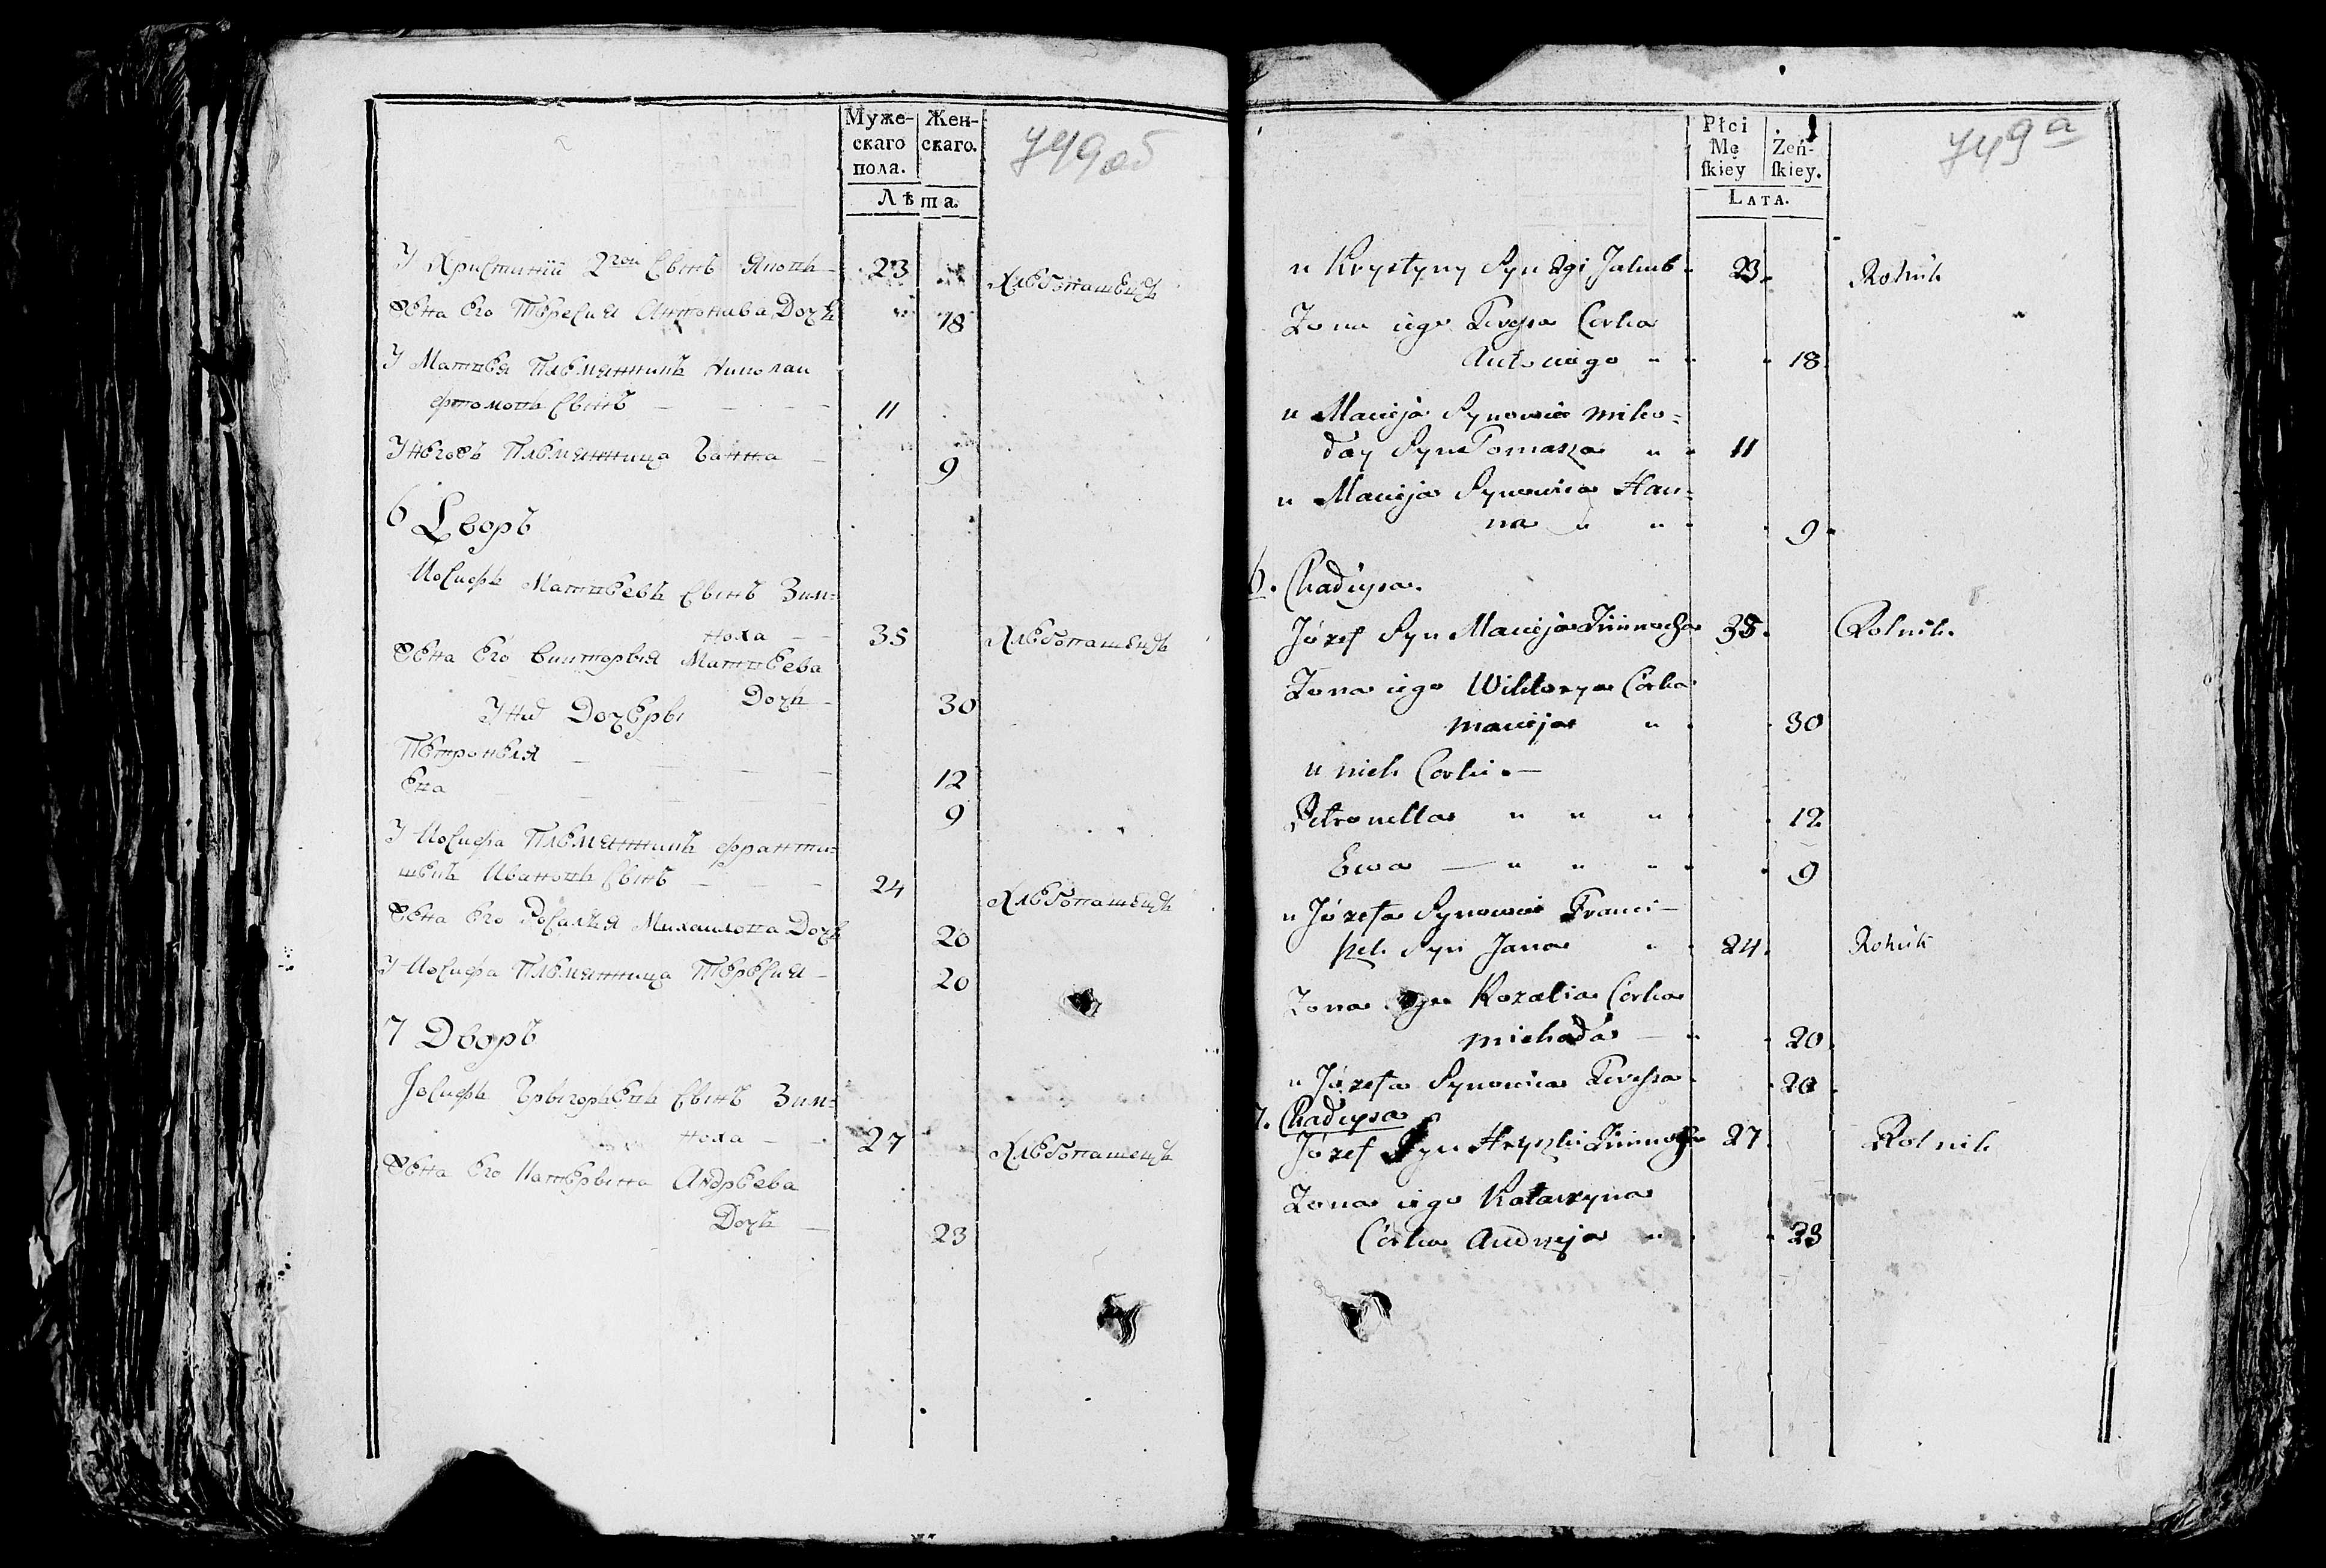 Муже-
скаго
пола.
Жен-
скаго.
Лѣта.
749 об
У Христины 2гои Сынъ Якопъ 23 Хлебопашецъ
Жена Его Тересия Антонива Дочь 18
У Матвея Племянникъ Николаи
фтомопъ Сынъ — — — 11
У Негожъ Племянница Ганна — 9
6 Дворъ
Иосифъ Матвеевъ Сынъ Зим=
ноха — — 35 Хлебопашецъ
Жена Его Викторыя Матвеева
Дочь — 30
У Ниѣ Дочеры
Петронеля — — — — 12
Ева — — — — 9
У Иосифа Племянникъ франти=
шекъ Ивановъ Сынъ — — 24 Хлебопашецъ
Жена Его Росалия Михаилова Дочь 20
У Иосифа Племянница Тересия — 20
7 Дворъ
Іосифъ Грыгорьевъ Сынъ Зим=
ноха — — 27 Хлебопашецъ
Жена Его Катерына Андреева
Дочь — 23
Płci
Mę
ſkiey
Żeń-
ſkiey.
LATA.
749 а
u Krystyny Syn 2gi Jakub 23 Rolnik
Zona iego Teressa Corka
Antoniego 18
u Macieja Synowiec Miko=
łay Syn Tomasza 11
u Macieja Synowica Han=
na 9
6. Chałupa.
Józef Syn Macieja Zimnocha 35. Rolnik.
Zona iego Wiktorya Corka
Macieja 30
u nich Corki —
Petronella 12
Ewa — 9
u Józefa Synowiec Franci—
szek Syn Jana 24. Rolnik
Zona iego Rozalia Corka
Michała — 20
u Józefa Synowica Teressa 20
7. Chałupa
Józef Syn Hryszki Zimnocha 27 Rolnik
Zona iego Katarzyna
Córka Andrzeja 23